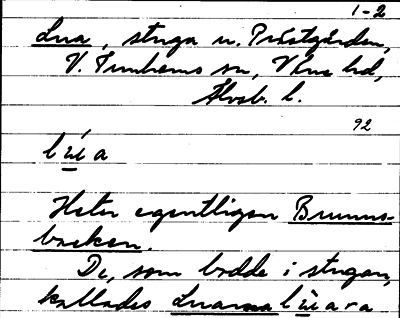 1-2
Lua, stuga u. Prästgården,
V. Tunhems sn, Väne hd,
Älvsb. l.
92
lúi a
Heter egentligen Brunns-
backen.
De, som bodde i stugan,
kallades Luarna